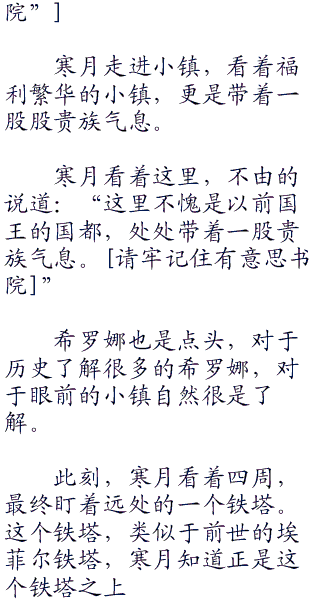 院”]
寒月走进小镇，看着福
利繁华的小镇，更是带着一
股股贵族气息。
寒月看着这里，不由的
说道：“这里不愧是以前国
王的国都，处处带着一股贵
族气息。[请牢记住有意思书
院]”
希罗娜也是点头，对于
历史了解很多的希罗娜，对
于眼前的小镇自然很是了
解。
此刻，寒月看着四周，
最终盯着远处的一个铁塔。
这个铁塔，类似于前世的埃
菲尔铁塔，寒月知道正是这
个铁塔之上